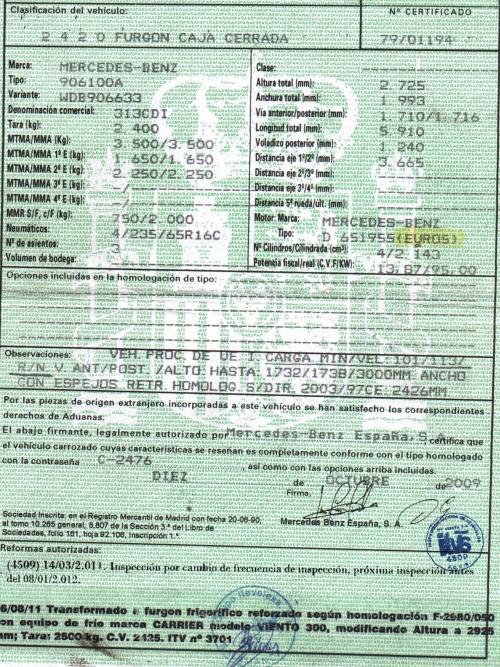 Clasificación del vehículo:
Nº CERTIFICADO
2 4 2 0 FURGON CAJA CERRADA
79/01194
Marca: MERCEDES-BENZ
Tipo: 906100A
Variante: WDB906633
Denominación comercial: 313CDI
Tara (kg): 2 400
MTMA/MMA (Kg): 3 500/3 500
MTMA/MMA 1º E (kg): 1 650/1 650
MTMA/MMA 2º E (kg): 2 250/2 250
MTMA/MMA 3º E (kg): -/-
MTMA/MMA 4º E (kg): -/-
MMR S/F, c/F (kg): 750/2 000
Neumáticos: 4/235/65R16C
Nº de asientos: 3
Volumen de bodega: -
Clase: -
Altura total (mm): 2 725
Anchura total (mm): 1 993
Vía anterior/posterior (mm): 1 710/1 716
Longitud total (mm): 5 910
Voladizo posterior (mm): 1 240
Distancia eje 1º/2º (mm): 3 665
Distancia eje 2º/3º (mm):
Distancia eje 3º/4º (mm):
Distancia 5ª rueda/últ. (mm):
Motor: Marca: MERCEDES-BENZ
Tipo: D 651955(EURO5)
Nº Cilindros/Cilindrada (cm³): 4/2 143
Potencia fiscal/real (C.V.F/KW): 13,87/95,00
Opciones incluidas en la homologación de tipo:
Observaciones: VEH. PROC. DE UE I. CARGA MIN/VEL: 101/113/
R/N V. ANT/POST. /ALTO HASTA: 1732/1738/3000MM ANCHO
CON ESPEJOS RETR. HOMOLOG. S/DIR. 2003/97CE 2426MM
Por las piezas de origen extranjero incorporadas a este vehículo se han satisfecho los correspondientes
derechos de Aduanas.
El abajo firmante, legalmente autorizado por Mercedes-Benz España, S.A. certifica que
el vehículo carrozado cuyas características se reseñan es completamente conforme con el tipo homologado
con la contraseña C-2476 así como con las opciones arriba incluidas.
DIEZ de OCTUBRE de 2009
Firma,
Sociedad Inscrita: en el Registro Mercantil de Madrid con fecha 20-06-90,
al tomo 10.265 general, 8.807 de la Sección 3ª del Libro de
Sociedades, folio 181, hoja 92.106, Inscripción 1.ª
Mercedes Benz España, S. A.
Reformas autorizadas:
(4509) 14/03/2.011. Inspección por cambio de frecuencia de inspección, próxima inspección antes
del 08/01/2.012.
6/08/11 Transformado a furgon frigorífico reforzado según homologación F-2980/050
con equipo de frío marca CARRIER modelo VIENTO 300, modificando Altura a 2925
mm; Tara: 2500 kg. C.V. 2125. ITV nº 3701